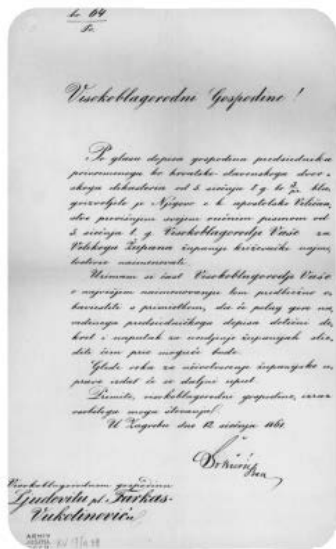 br. 64
Pr.
Visokoblagorodni Gospodine!
Po glasu dopisa gospodina predsednika
privremenoga kr. hrvatsko-slavonskoga dvor-
skoga dikasteria od 5. siečnja t. g. br.
blagoizvoljelo je Njegovo c. k. apostolsko Veličan.
stvo previšnjim svojim ručnim pismom od
5. siečnja t. g. Visokoblagorodje Vaše za
Velikoga Župana županije križevačke najmi,
lostivie naimenovati.
Uzimam si čast Visokoblagorodje Vaše
o najvišjem naimenovanju tom predbiežno o,
baviestiti s primietkom, da će polag gore na,
vedenoga predsedničkoga dopisa dotični de,
kret i naputak za uredjenje županijah slie,
diti čim prie moguće bude.
Glede roka za uživotvorenje županijske u,
prave izdat će se daljni uput.
Primite, visokoblagorodni gospodine, izraz
osobitoga moga štovanja!
U Zagrebu dne 12 siečnja 1861.
Visokoblagorodnom gospodinu
Ljudevitu pl. Farkas-
Vukotinoviću
ARHIV